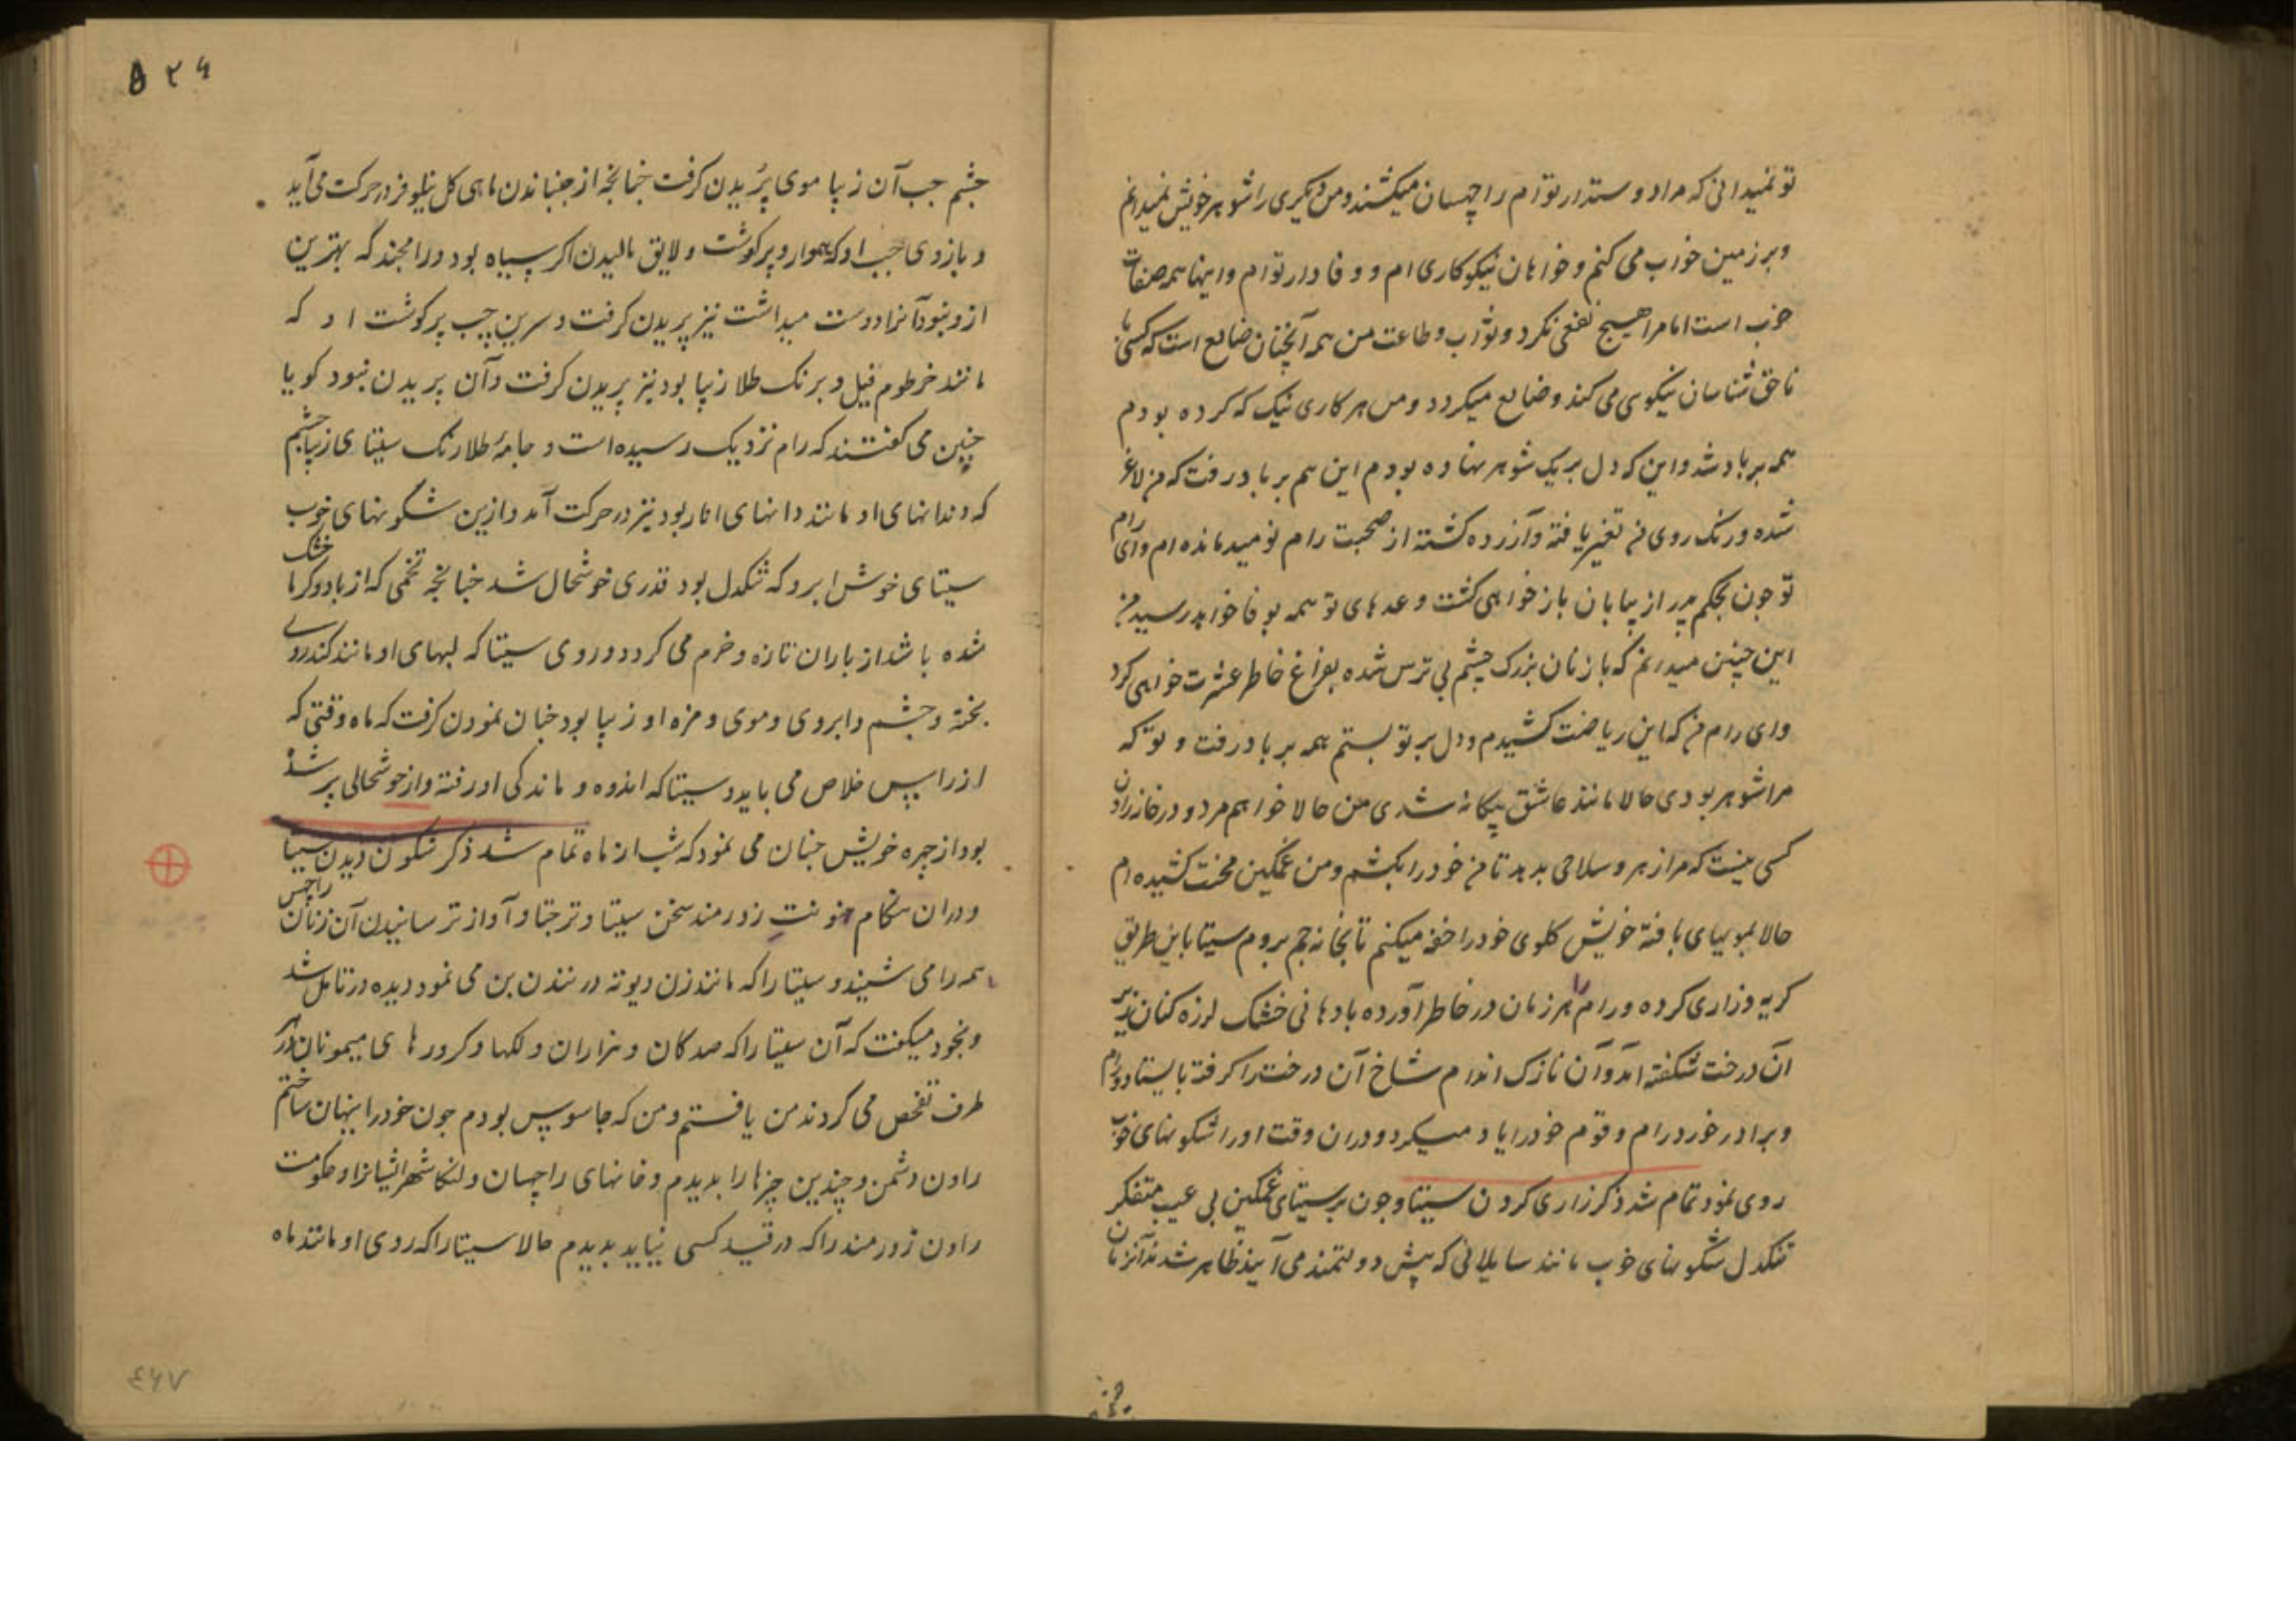 تو نمیدانی که مرا دوستدار تو ام راچهسان میکشند و من دیکری را شوهر خویش نمیدانم
و بر زمین خواب می کنم و خواهان نیکو کاری ام و وفادار تو ام و اینها همه صفات
خوب است اما مرا هیچ نفعی نکرد و ثواب و طاعت من همه آنچنان ضایع است که کسی با
ناحق شناسان نیکوی می کند و ضایع میکردد و من هر کاری نیک که کرده بودم
همه بر باد شد و این که دل بر یک شوهر نهاده بودم این هم بر باد رفت که من لاغر
شده و رنک روی من تغیر یافته و آزرده کشته از صحبت رام نومید مانده ام و ای رام
تو جون بحکم پدر از بیابان باز خواهی کشت وعدهای تو همه بوفا خواهد رسید من
این چنین میدانم که با زنان بزرک چشم بی ترس شده بفراغ خاطر عشرت خواهی کرد
وای رام من که این ریاضت کشیدم و دل بر تو بستم همه بر باد رفت و تو که
مرا شوهر بودی حالا مانند عاشق بیکانه شدی من حالا خواهم مرد و در خانه راون
کسی نیست که مرا زهر و سلاحی بدهد تا من خود را بکشم و من غمکین محنت کشیده ام
حالا بمویهای بافتهٔ خویش کلوی خود را خفه میکنم تا بخانه جم بروم سیتا باین طریق
کریه و زاری کرده و رام را هر زمان در خاطر آورده با دهانی خشک لرزه کنان زیر
آن درخت شکفته آمد و آن نازک اندام شاخ آن درخت را کرفته بایستاد و رام
و برادر خورد رام و قوم خود را یاد میکرد و دران وقت او را شکونهای خوب
روی نمود تمام شد ذکر زاری کردن سیتا و جون بر سیتای غمکین بی عیب متفکر
تنکدل شکونهای خوب مانند سایلانی که پیش دولتمند می آیند ظاهر شدند آنزمان
۵۲۶
جشم جب آن زیبا موی پُریدن کرفت جنانجه از جنباندن ماهی کل نیلوفر در حرکت می آید
و بازوی جب او که هموار و پر کوشت و لایق مالیدن اکر سیاه بود و رامچند که بهترین
ازو نبود آنرا دوست میداشت نیز پریدن کرفت و سرین چپ پر کوشت او که
مانند خرطوم فیل و برنک طلا زیبا بود نیز پریدن کرفت و آن پریدن نبود کویا
چنین می کفتند که رام نزدیک رسیده است و جامهٔ طلا رنک سیتای زیبا جشم
که دندانهای او مانند دانهای انار بود نیز در حرکت آمد و ازین شکونهای خوب
سیتای خوش ابرو که تنکدل بود قدری خوشحال شد جنانجه تخمی که از باد و کرما خشک
شده باشد از باران تازه و خرم می کردد و روی سیتا که لبهای او مانند کندروی
پخته و جشم و ابروی و موی و مژه او زیبا بود جنان نمودن کرفت که ماه وقتی که
از راس خلاص می یابد و سیتا که اندوه و ماندکی او رفته و از خوشحالی پر شده
بود از جهره خویش جنان می نمود که شب از ماه تمام شد ذکر شکون دیدن سیتا
و دران هنکام هنونت زورمند سخن سیتا و ترجتا و آواز ترسانیدن آن زنان راجس
همه را می شنید و سیتا را که مانند زن دیوته در نندن بن می نمود دیده در تامل شد
و بخود میکفت که آن سیتا را که صدکان و هزاران و لکها و کرورهای میمونان در هر
طرف تفحص می کردند من یافتم و من که جاسوس بودم جون خود را پنهان ساختم
راون دشمن و چندین چیزها را بدیدم و خانهای راجسان و لنکا شهر ایشانرا و حکومت
راون زورمند را که در قید کسی نیاید بدیدم حالا سیتا را که روی او مانند ماه
٤٦٧